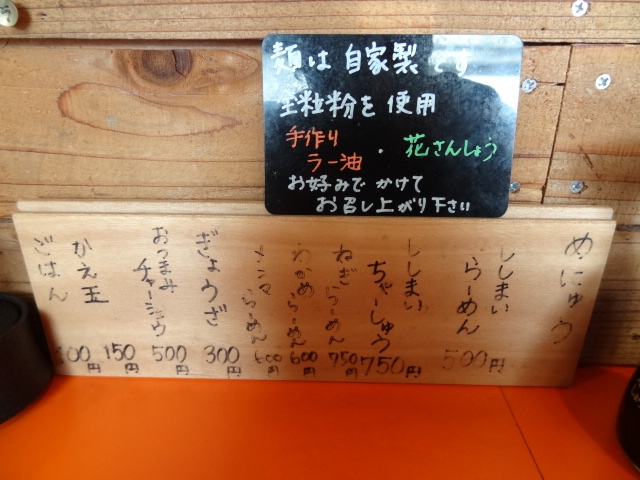 麺は 自家製 です
全粒粉を 使用
手作り
ラー油
・ 花さんしょう
お好みで かけて
お召し上がり下さい
めにゅう
ししまい
らーめん
500円
ししまい
ちゃーしゅう
750円
ねぎらーめん
750円
わかめらーめん
600円
メンマらーめん
600円
ぎょうざ
300円
おつまみ
チャーシュウ
500円
かえ玉
150円
ごはん
100円